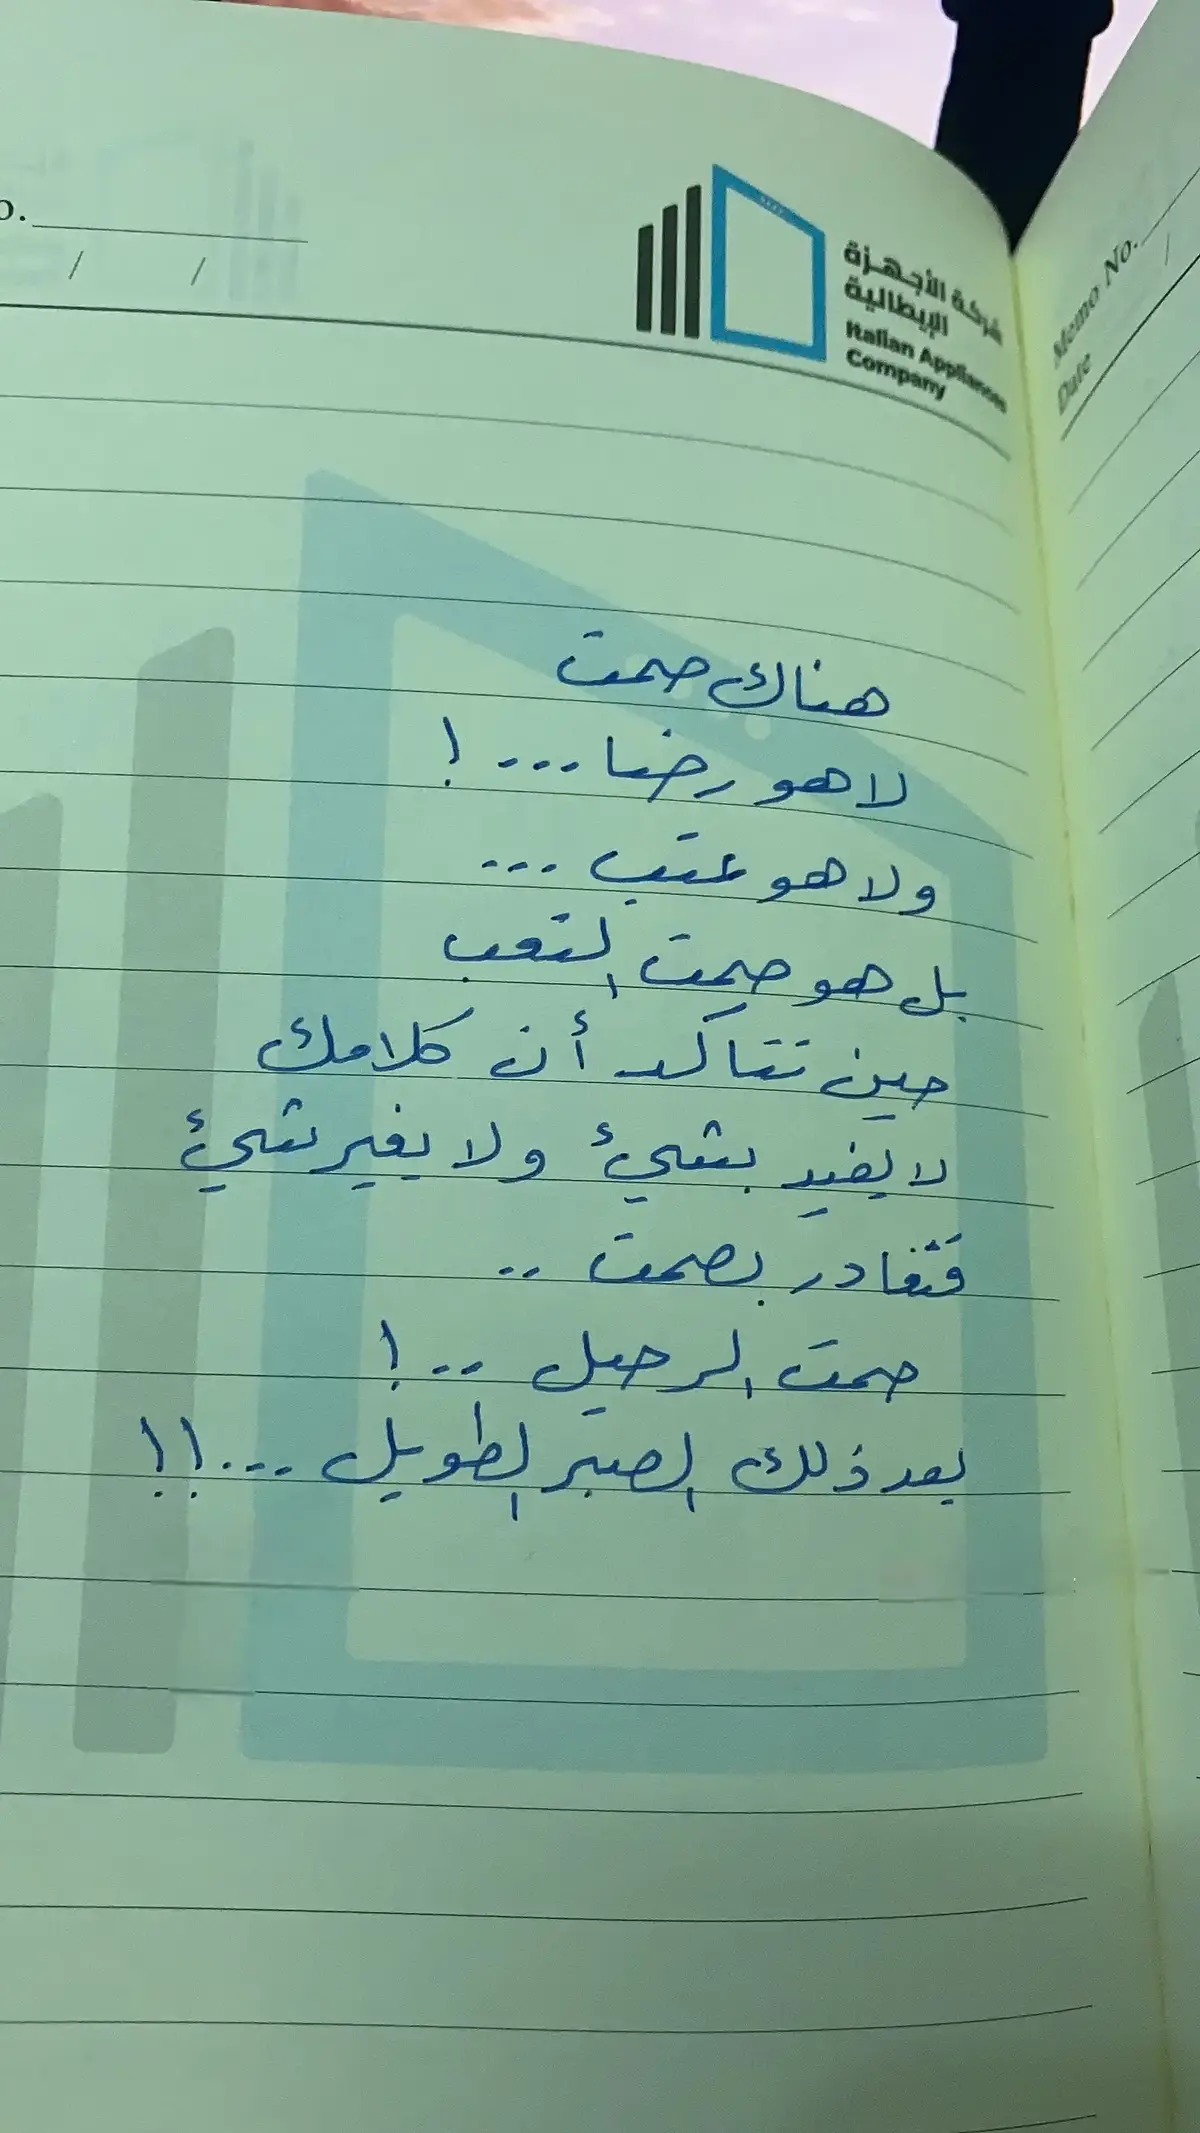 o.
/ /
شركة الأجهزة
الإيطالية
Italian Appliances
Company
Memo No.
Date
/
هناك صمت
لا هو رضا ... !
ولا هو عتب ...
بل هو صمت التعب
حين تتاكد أن كلامك
لا يفيد بشيئ ولا يغير شيئ
فتغادر بصمت ..
صمت الرحيل .. !
بعد ذلك الصبر الطويل ... !!